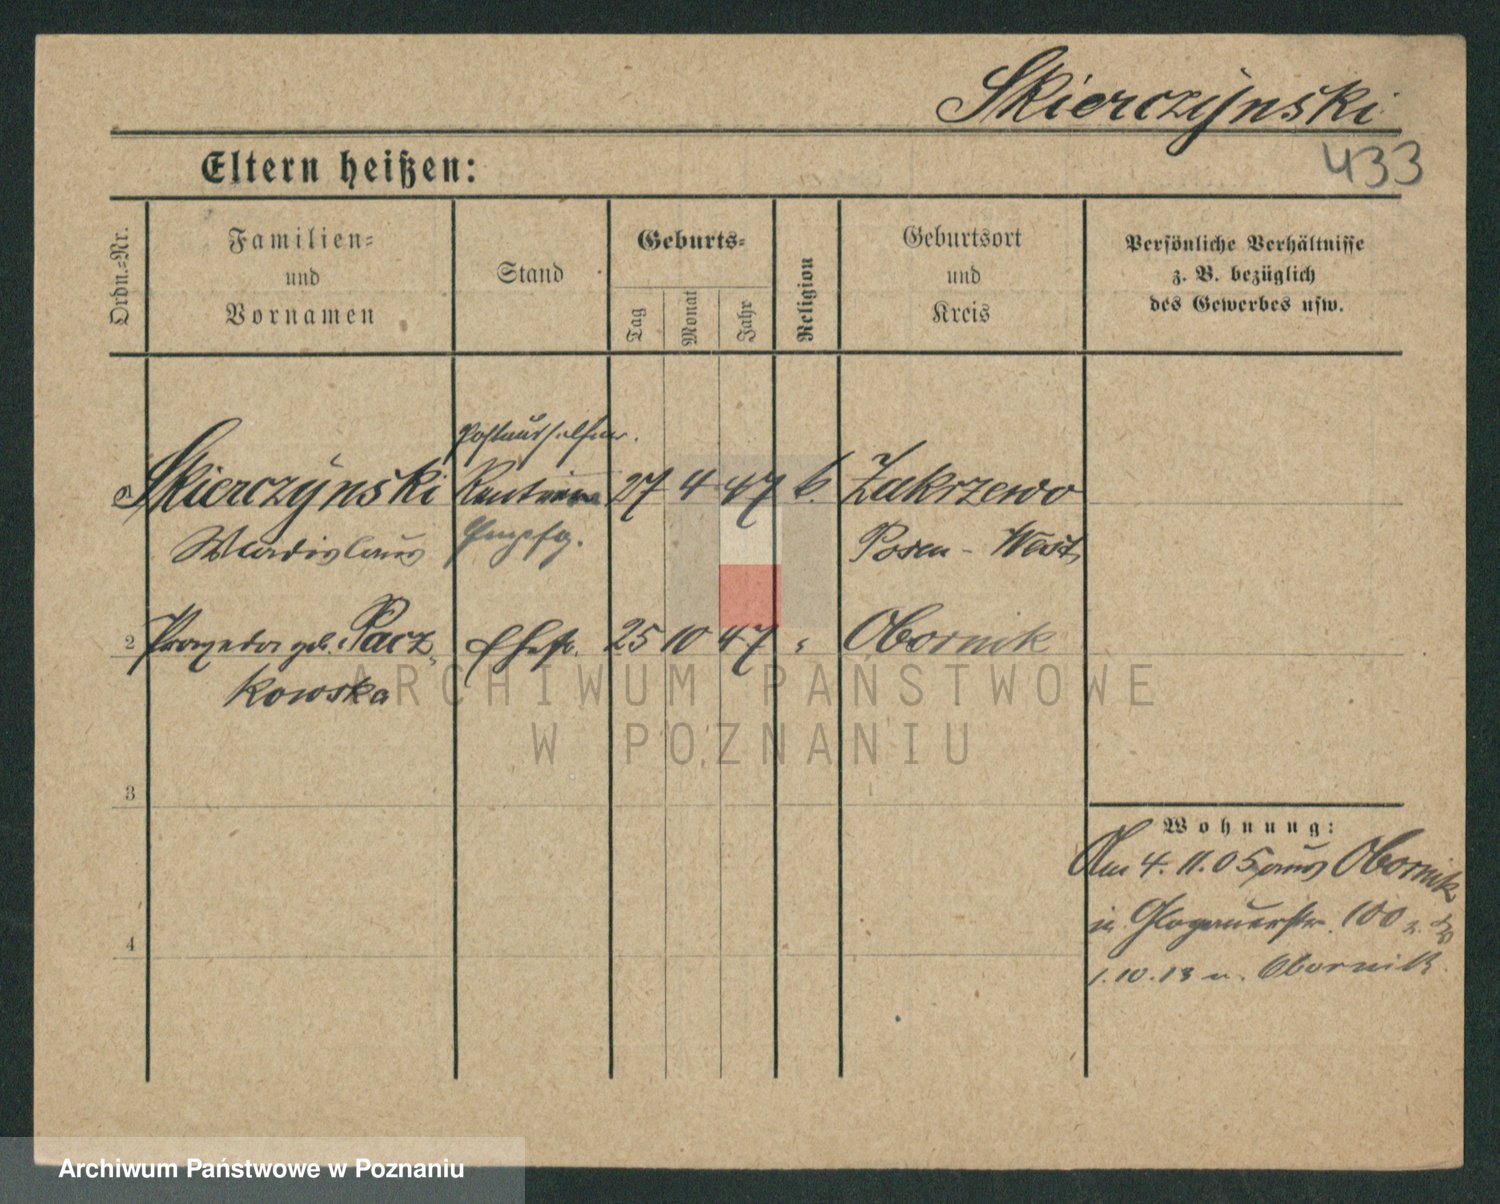 Skierczynski
433
Eltern heißen:
Ordn.-Nr.
Familien-
und
Vornamen
Stand
Geburts-
Tag
Monat
Jahr
Religion
Geburtsort
und
Kreis
Persönliche Verhältnisse
z. B. bezüglich
des Gewerbes usw.
Skierczynski
27 4 47 k.
Zakrzewo
Wladislaus
Empfg.
Posen - West
2 Praxeda geb. Pacz-
kowska
Ehefr.
25 10 47 "
Obornik
3
4
Wohnung:
Am 4.11.05 aus Obornik
in Glogauerstr. 100
1.10.13 n. Obornik
ARCHIWUM PAŃSTWOWE
W POZNANIU
Archiwum Państwowe w Poznaniu